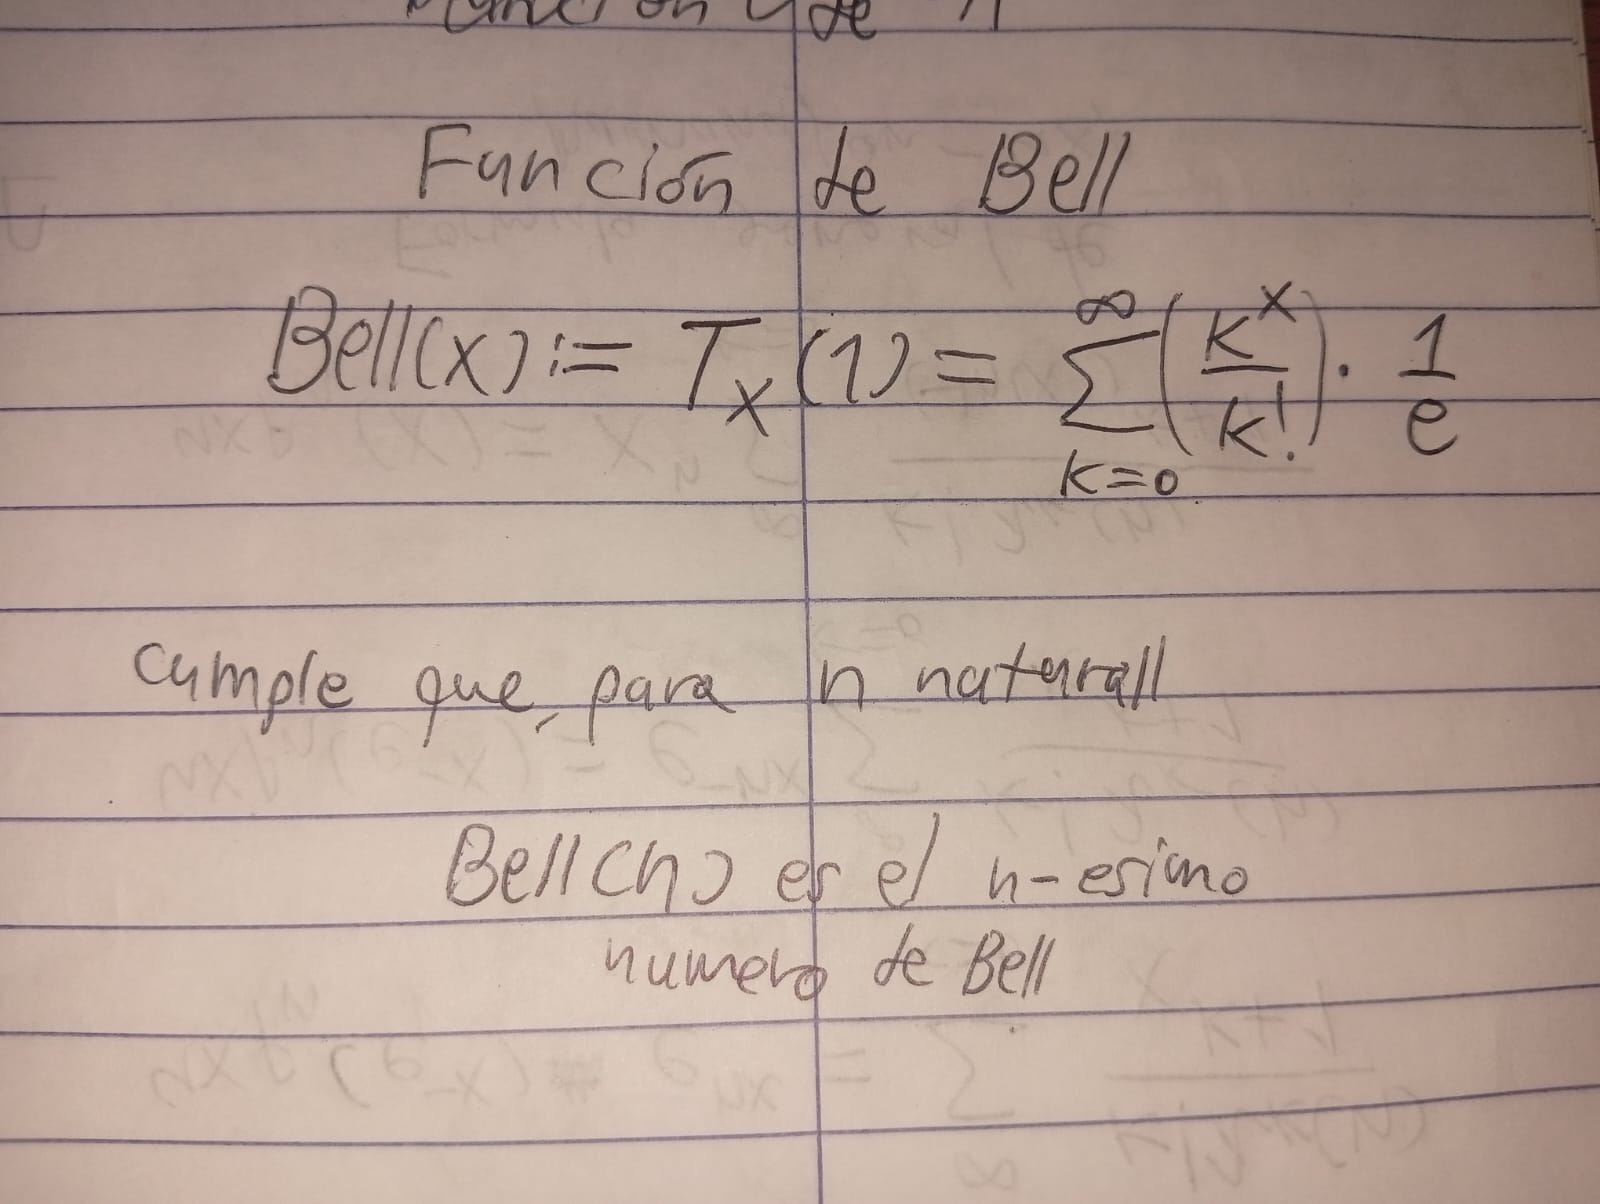 de
Función de Bell
Bell(x) := Tₓ(1) = ∑_{k=0}^{∞} (k^x / k!) · 1/e
cumple que, para n naturall
Bell(n) es el n-esimo
numero de Bell